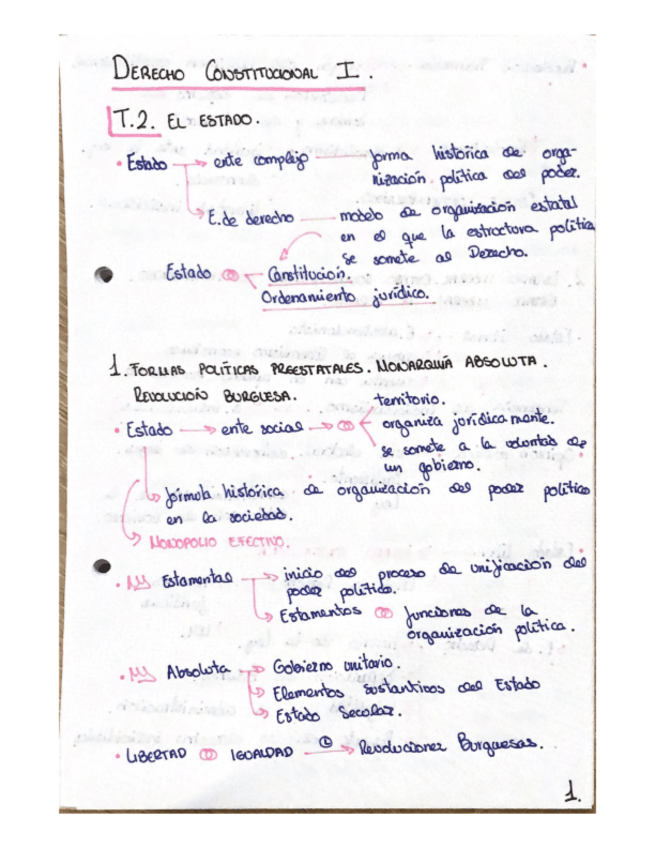 DERECHO CONSTITUCIONAL I.
T.2. EL ESTADO.
• Estado → ente complejo — forma histórica de orga-
nización política del poder.
→ E. de derecho — modelo de organización estatal
en el que la estructura política
se somete al Derecho.
Estado — Constitución.
Ordenamiento jurídico.
1. FORMAS POLÍTICAS PREESTATALES. MONARQUÍA ABSOLUTA.
REVOLUCIÓN BURGUESA.
territorio.
• Estado → ente social → organiza jurídicamente.
se somete a la voluntad de
un gobierno.
→ fórmula histórica de organización del poder político
en la sociedad.
→ MONOPOLIO EFECTIVO.
• Estamental → inicio del proceso de unificación del
poder político.
→ Estamentos funciones de la
organización política.
• Absoluta → Gobierno unitario.
→ Elementos sustantivos del Estado
→ Estado Secular.
• LIBERTAD IGUALDAD → Revoluciones Burguesas.
1.